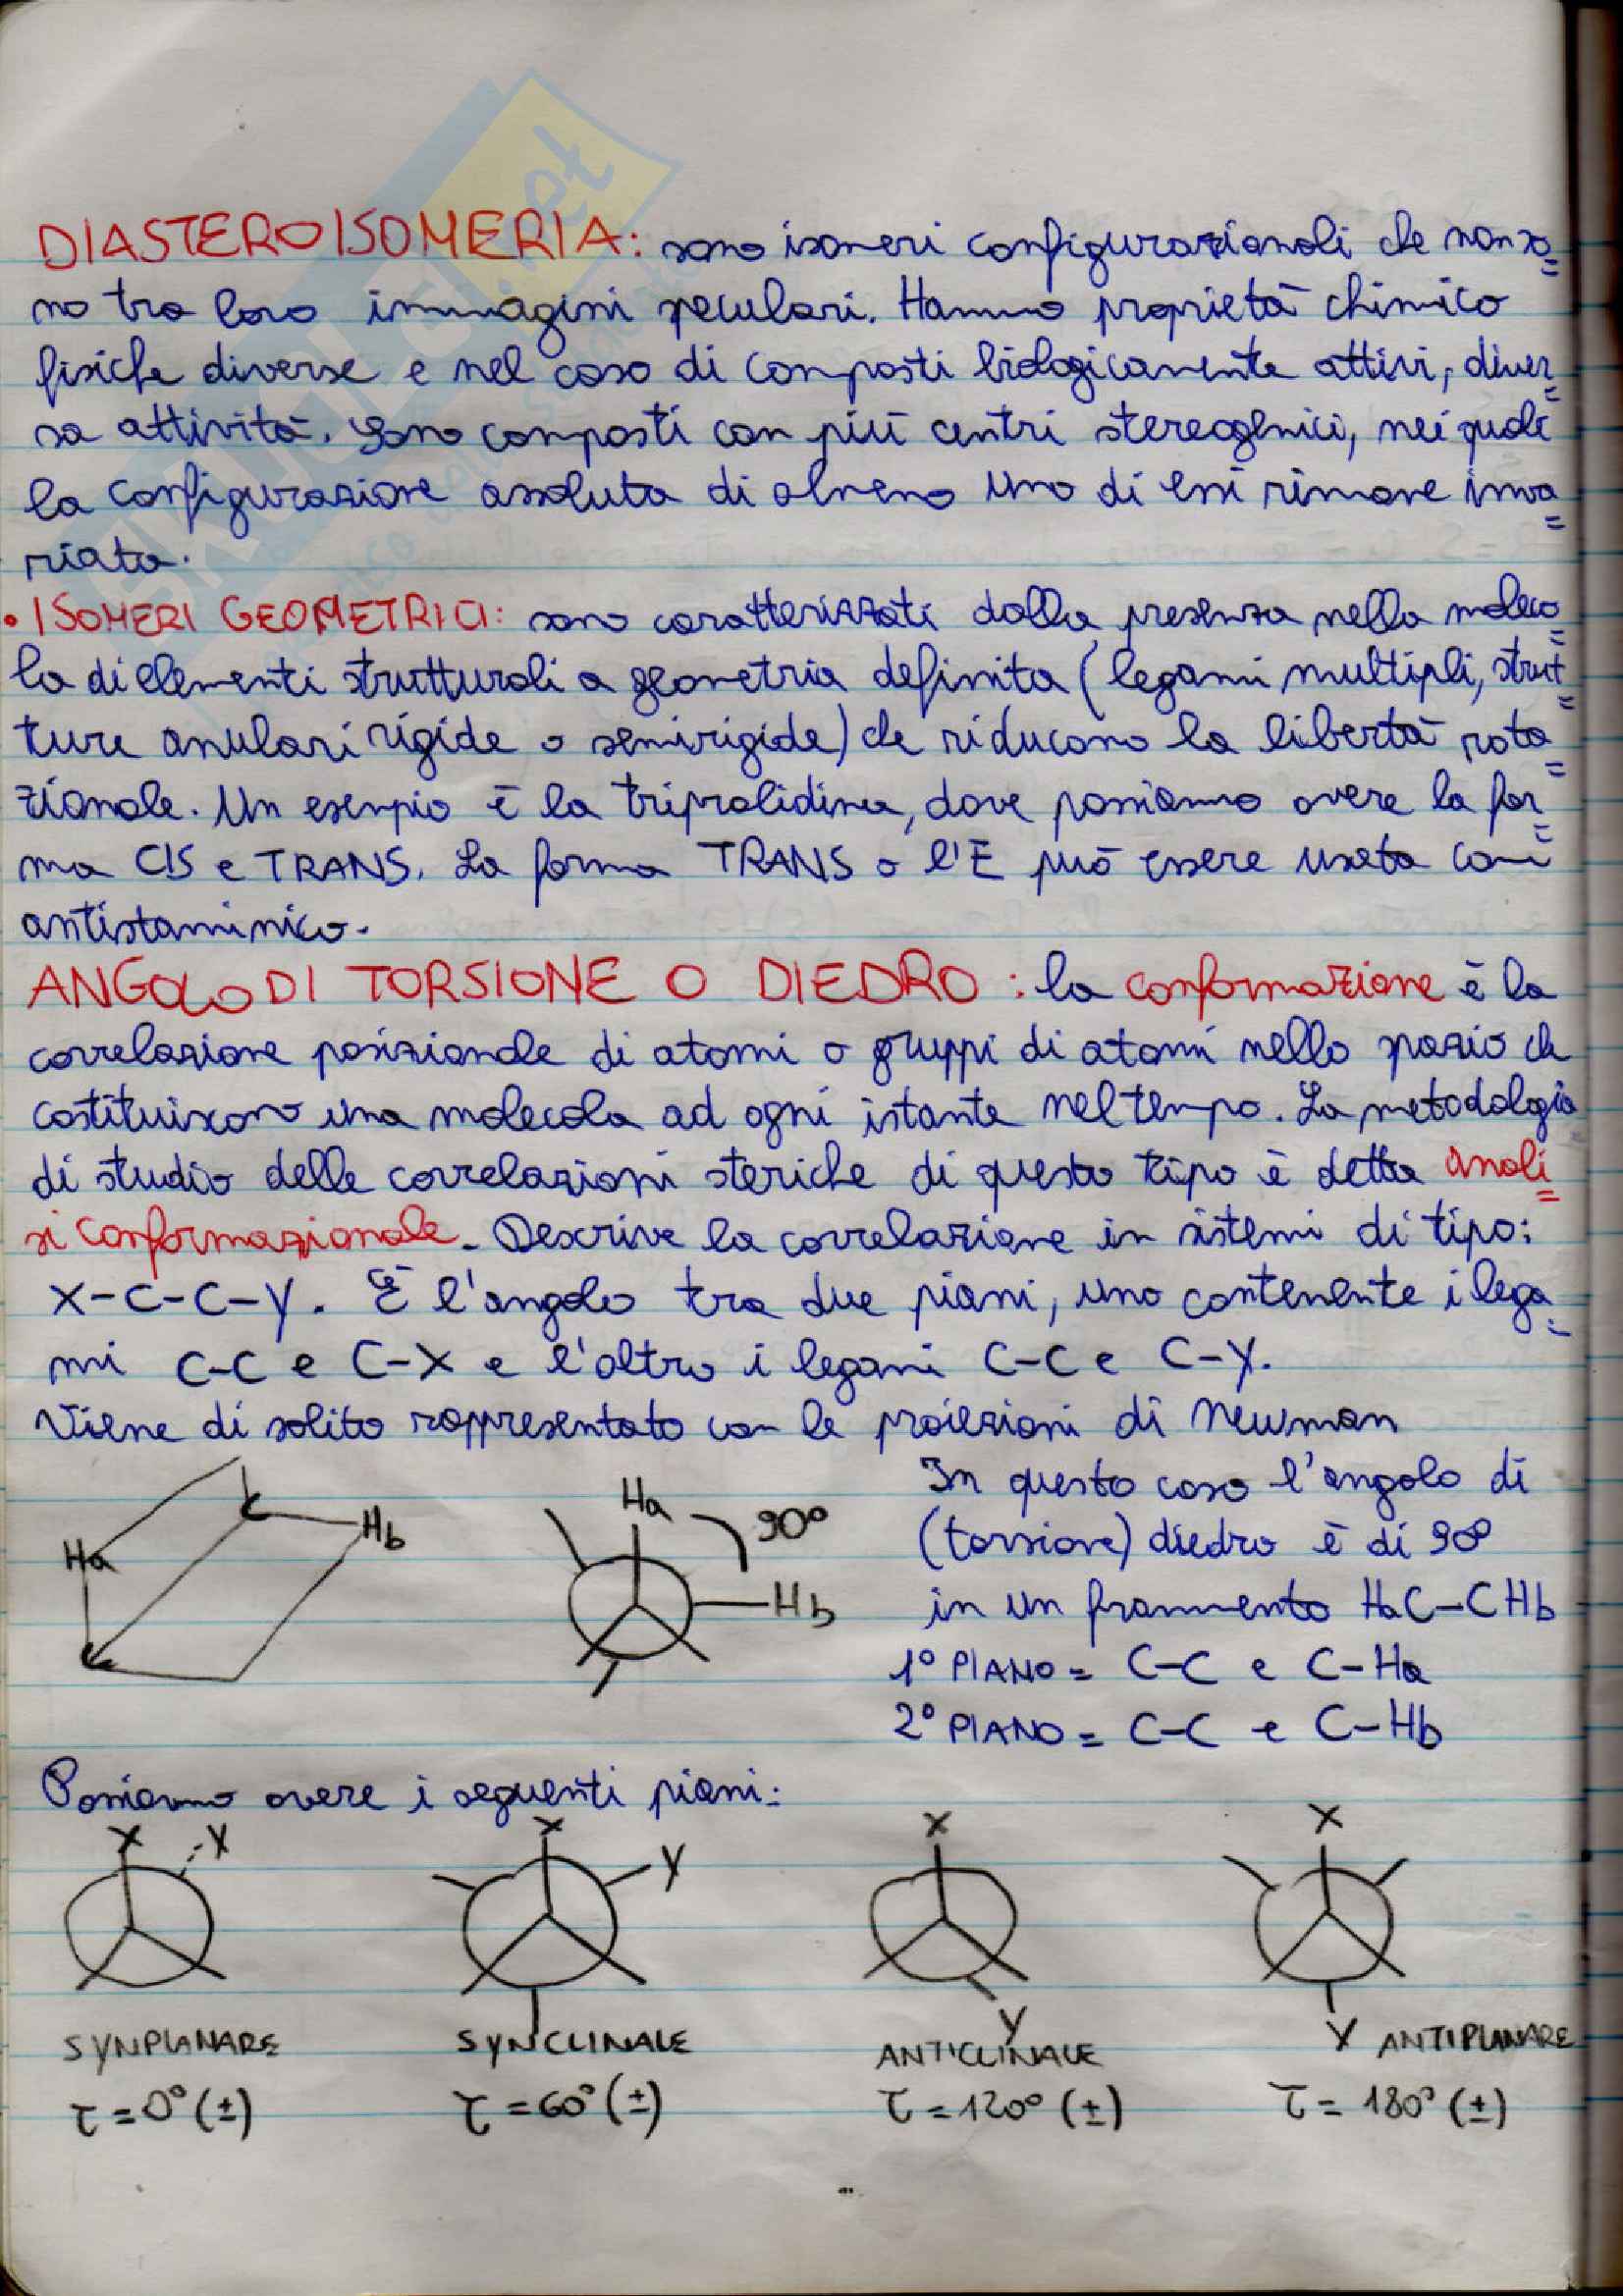 DIASTEROISOMERIA: sono isomeri configurazionali che non so=
no tra loro immagini speculari. Hanno proprietà chimico
fisiche diverse e nel caso di composti biologicamente attivi, diver=
sa attività. Sono composti con più centri stereogenici, nei quali
la configurazione assoluta di almeno uno di essi rimane inva=
riata.
• ISOMERI GEOMETRICI: sono caratterizzati dalla presenza nella moleco=
la di elementi strutturali a geometria definita (legami multipli, strut=
ture anulari rigide o semirigide) che riducono la libertà rota=
zionale. Un esempio è la triprolidina, dove possiamo avere la for=
ma CIS e TRANS. La forma TRANS o l'E può essere usata come
antistaminico.
ANGOLO DI TORSIONE O DIEDRO: la conformazione è la
correlazione posizionale di atomi o gruppi di atomi nello spazio che
costituiscono una molecola ad ogni istante nel tempo. La metodologia
di studio delle correlazioni steriche di questo tipo è detta anali=
si conformazionale. Descrive la correlazione in sistemi di tipo:
X-C-C-Y. È l'angolo tra due piani, uno contenente i lega=
mi C-C e C-X e l'altro i legami C-C e C-Y.
Viene di solito rappresentato con le proiezioni di Newman
Ha
Hb
Ha
90°
Hb
In questo caso l'angolo di
(torsione) diedro è di 90°
in un frammento HaC-CHb
1° PIANO = C-C e C-Ha
2° PIANO = C-C e C-Hb
Possiamo avere i seguenti piani:
X Y
X Y
X
X
Y
Y
SYNPLANARE
SYNCLINALE
ANTICLINALE
ANTIPLANARE
τ = 0° (±)
τ = 60° (±)
τ = 120° (±)
τ = 180° (±)